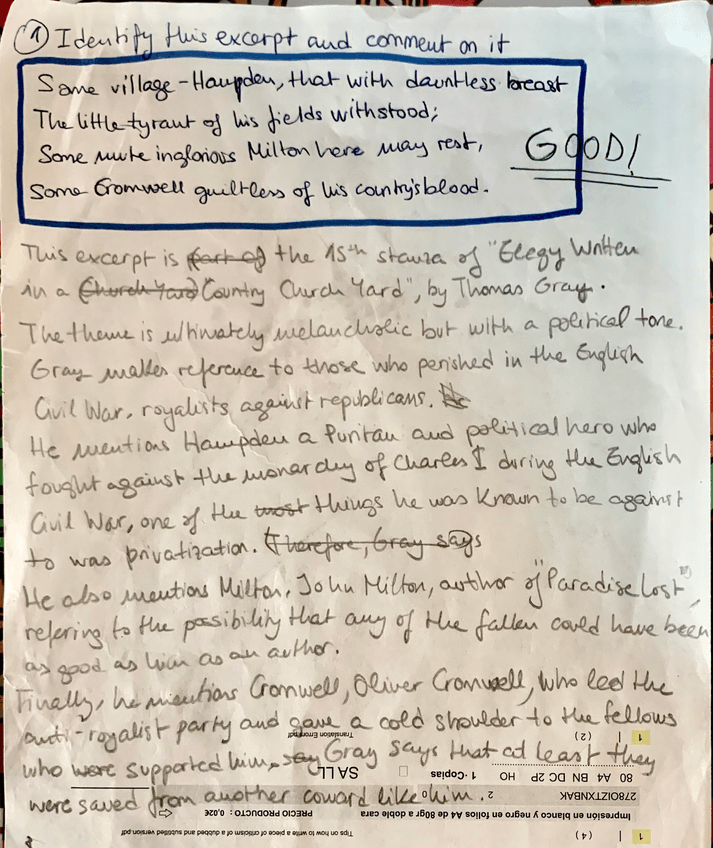 ① Identify this excerpt and comment on it
Some village-Hampden, that with dauntless breast
The little tyrant of his fields withstood;
Some mute inglorious Milton here may rest,
Some Cromwell guiltless of his country's blood.
GOOD!
This excerpt is part of the 15th stanza of "Elegy Written
in a Church Yard Country Church Yard", by Thomas Gray.
The theme is ultimately melancholic but with a political tone.
Gray makes reference to those who perished in the English
Civil War, royalists against republicans.
He mentions Hampden a Puritan and political hero who
fought against the monarchy of Charles I during the English
Civil War, one of the most things he was known to be against
to was privatization. Therefore, Gray says
He also mentions Milton, John Milton, author of "Paradise Lost",
refering to the possibility that any of the fallen could have been
as good as him as an author.
Finally, he mentions Cromwell, Oliver Cromwell, who led the
anti-royalist party and gave a cold shoulder to the fellows
who were supported him, say Gray says that at least they
were saved from another coward like him.
Tips on how to write a piece of criticism of a dubbed and subtitled version.pdf
1 | (4)
Impresión en blanco y negro en folios A4 de 80gr a doble cara
PRECIO PRODUCTO: 0,02€
278OIZTXNBAK
80 A4 BN DC 2P HO
1 -Copias
SA LL
1 | (2)
Translation Errors.pdf